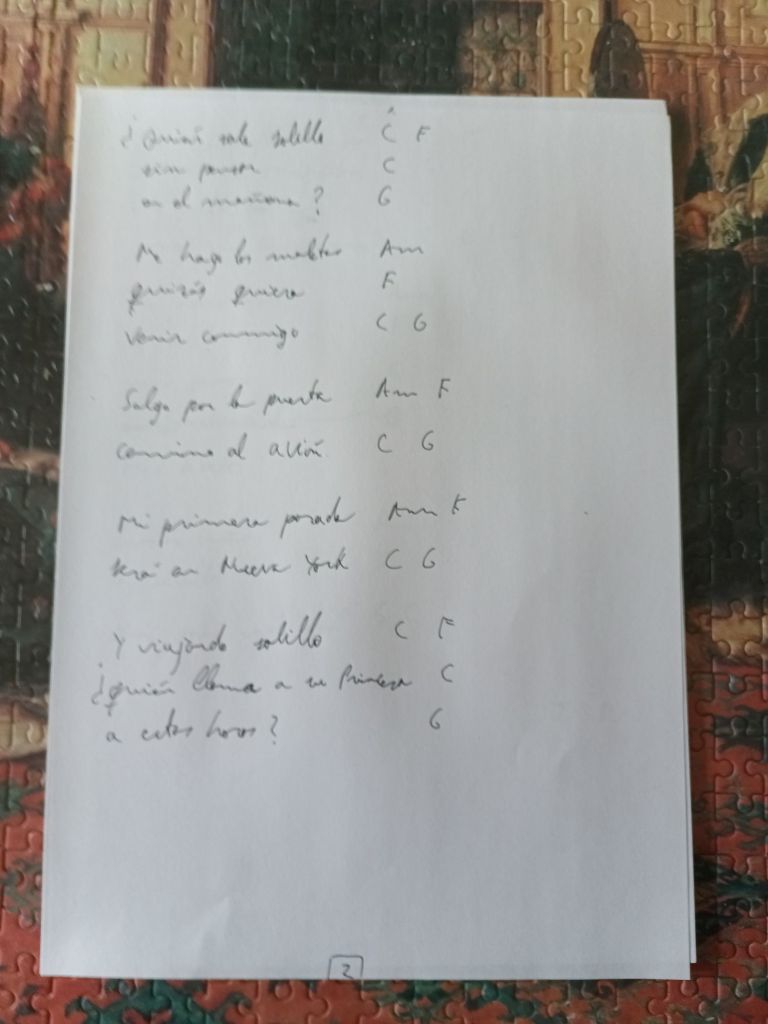 ¿Quién sale solillo C F
sin pensar C
en el mañana? G
Me hago las maletas Am
quizás quiera F
venir conmigo C G
Salgo por la puerta Am F
camino al avión C G
Mi primera parada Am F
será en Nueva York C G
Y viajando solillo C F
¿quién llama a su Princesa C
a estas horas? G
2